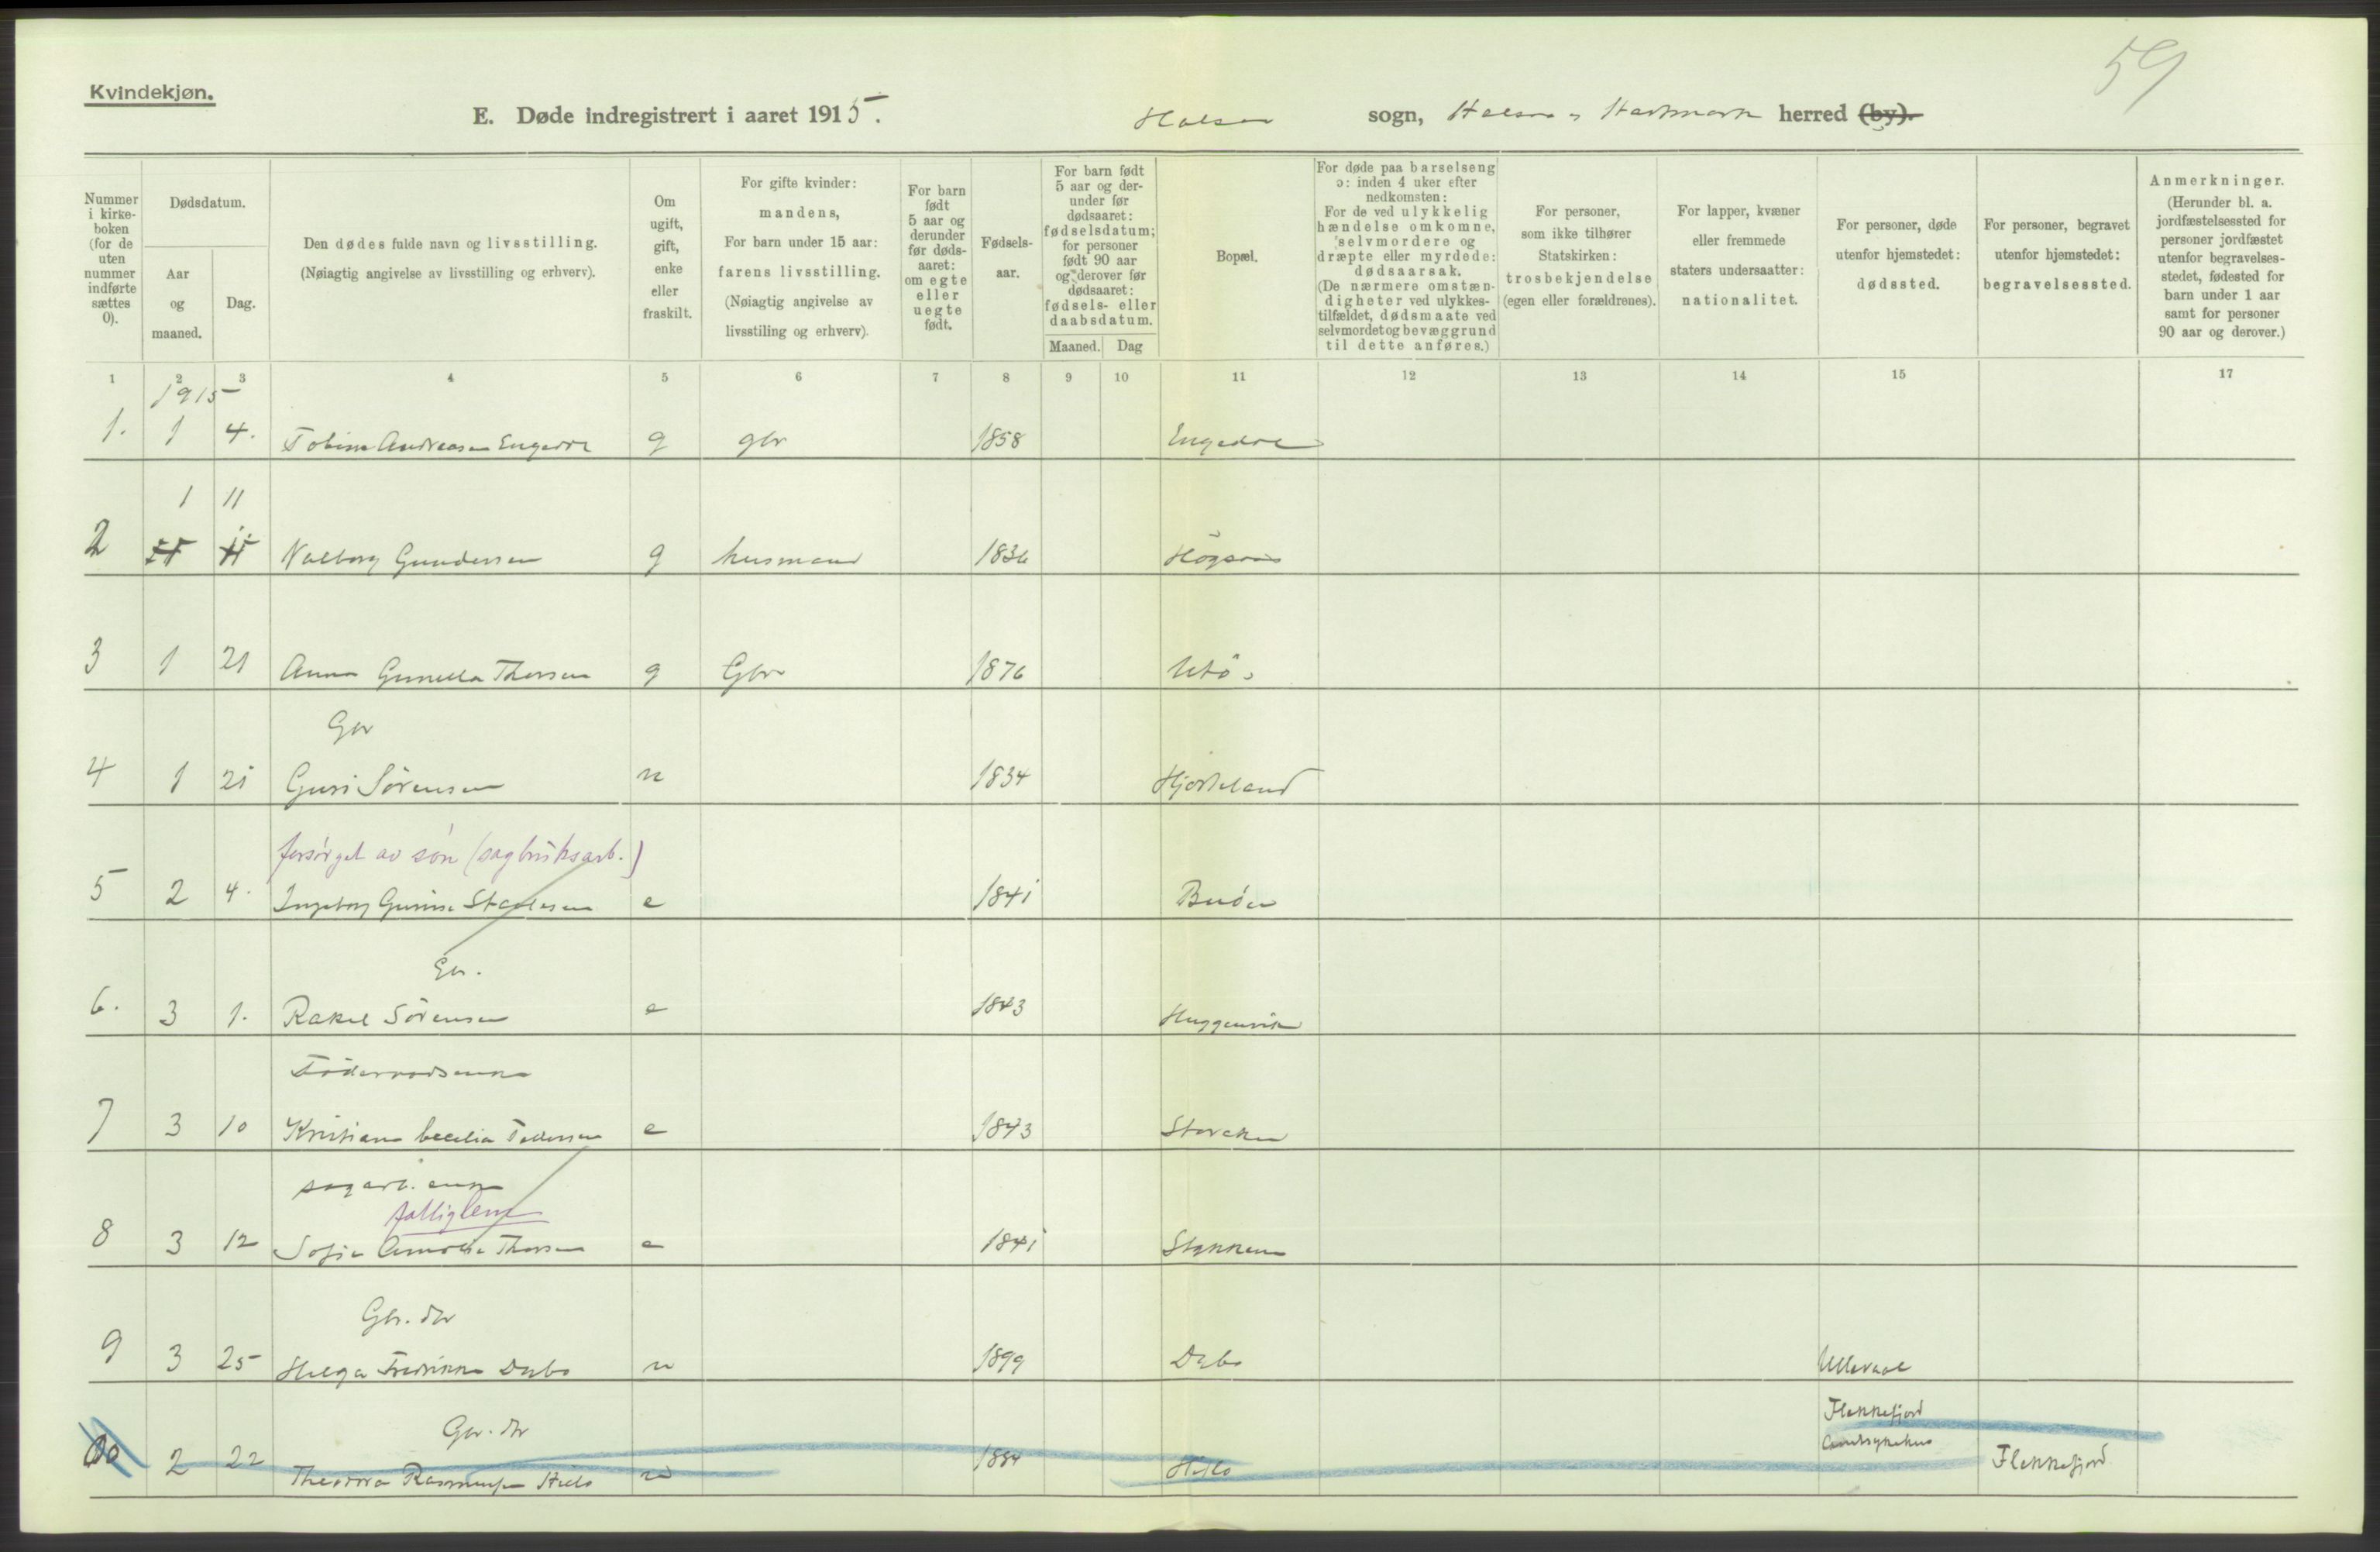 59
Kvindekjøn.
E. Døde indregistrert i aaret 1915. Halsaa sogn, Halsaa og Hartmark herred (by).
Nummer i kirkeboken (for de uten nummer indførte sættes 0).
Dødsdatum.
Aar og maaned.
Dag.
Den dødes fulde navn og livsstilling.
(Nøiagtig angivelse av livsstilling og erhverv).
Om ugift, gift, enke eller fraskilt.
For gifte kvinder: mandens,
For barn under 15 aar: farens livsstilling.
(Nøiagtig angivelse av livsstiling og erhverv).
For barn født 5 aar og derunder før dødsaaret: om egte eller uegte født.
Fødselsaar.
For barn født 5 aar og derunder før dødsaaret: fødselsdatum; for personer født 90 aar og derover før dødsaaret: fødsels- eller daabsdatum.
Maaned. Dag
Bopæl.
For døde paa barselseng ɔ: inden 4 uker efter nedkomsten:
For de ved ulykkelig hændelse omkomne, selvmordere og dræpte eller myrdede: dødsaarsak.
(De nærmere omstændigheter ved ulykkestilfældet, dødsmaate ved selvmordet og bevæggrund til dette anføres.)
For personer, som ikke tilhører Statskirken: trosbekjendelse (egen eller forældrenes).
For lapper, kvæner eller fremmede staters undersaatter: nationalitet.
For personer, døde utenfor hjemstedet: dødssted.
For personer, begravet utenfor hjemstedet: begravelsessted.
Anmerkninger.
(Herunder bl. a. jordfæstelsessted for personer jordfæstet utenfor begravelsesstedet, fødested for barn under 1 aar samt for personer 90 aar og derover.)
1 2 3 4 5 6 7 8 9 10 11 12 13 14 15 17
1915
1. 1 4. Tobine Andreasen Engedal g gbr 1858 Engedal
1 11
2 Valborg Gundersen g husmand 1836
3 1 21 Anna Gunella Thorsen g Gbr 1876
Gbr
4 1 21 Guri Sørensen 1834 Hjorteland
forsørget av søn (sagbruksarb.)
5 2 4. Ingeborg e 1841
6. 3 1. Rakel Sørensen e 1843 Huggenvik
Føderaadsenke
7 3 10 Kristiane Cecilia e 1843
sagarb. enke
fattiglem
8 3 12 Sofie Thorsen e 1841 Stykken
Gbr. dtr
9 3 25 Helga Fredrikke Dybo u 1899 Dybo Ullevaal
Gbr. dtr Flekkefjord
10 2 22 Theodora Rasmussen u 1884 amtssykehus Flekkefjord